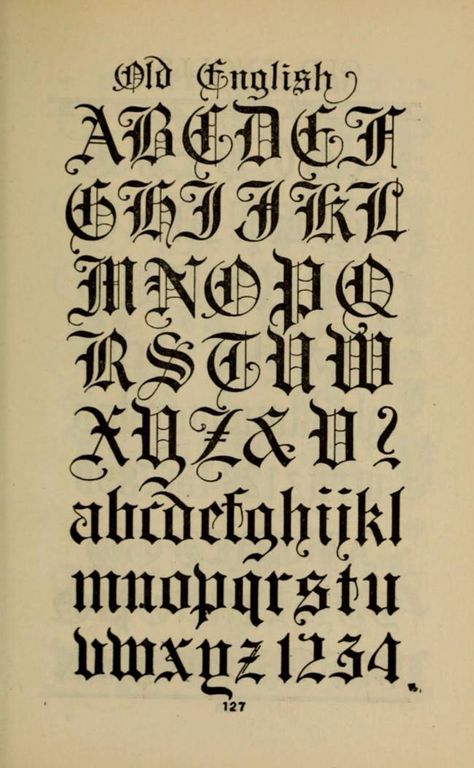 Old English
ABCDEF
GHIJKL
MNOPQ
RSTUW
XYZ&V?
abcdefghijkl
mnopqrstu
vwxyz1234
127